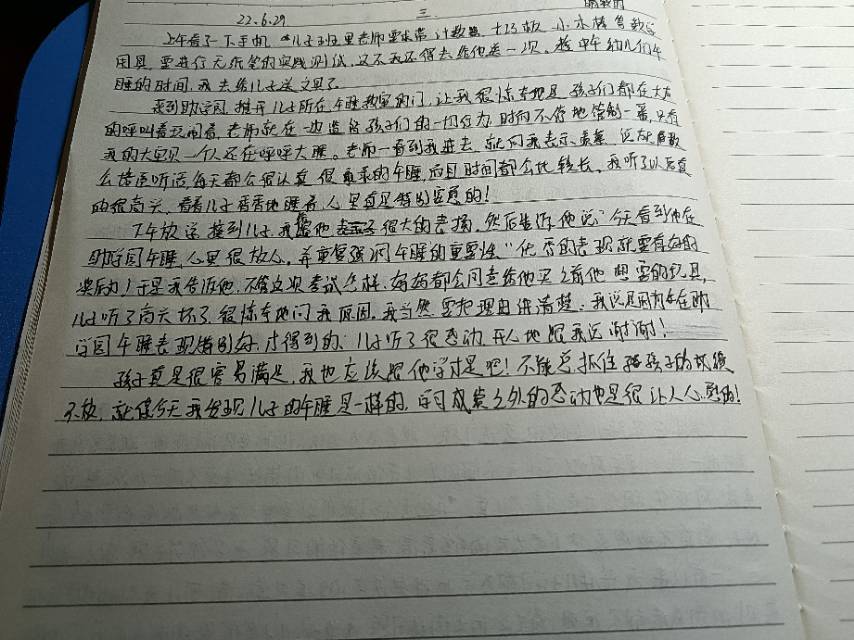 22.6.29 三
上午看了一下手机,儿子班里老师要求带计数器 小木棒等教学
用具,要进行无纸笔的实践测试,这不我还得去给他送一次。趁中午幼儿们午
睡的时间,我去给儿子送文具了。
来到助学园,推开儿子所在午睡教室的门,让我很惊奇地是,孩子们都在大声
的呼叫着玩闹着,老师就在一边 孩子们的一切行为,时而不停地管制一番,只有
我的大宝贝一个人还在呼呼大睡。老师一看到我进去,就向我表示羡慕,说
么 听话,每天都会很认真 很 的午睡,而且时间都会比较长。我听了以后真
的很高兴,看着儿子香香地睡着,心里真是特别安慰的!
下午放学,接到儿子,我给他很大的表扬,然后告诉他说:“今天看到他在
助学园午睡,心里很放心。并重复强调午睡的重要性”优秀的表现就要有好的
奖励!于是我告诉他,不管这次考试怎样,妈妈都会同意给他买之前他想要的玩具,
儿子听了高兴坏了,很惊奇地问我原因,我当然要把理由讲清楚:我说是因为你在助
学园午睡表现特别好,才得到的,儿子听了很感动,开心地跟我说谢谢!
孩子真是很容易满足,我也应该跟他学才是吧!不能总抓住孩子的成绩
不放,就像今天我发现儿子的午睡是一样的,学习成绩之外的感动也是很让人心慰的!